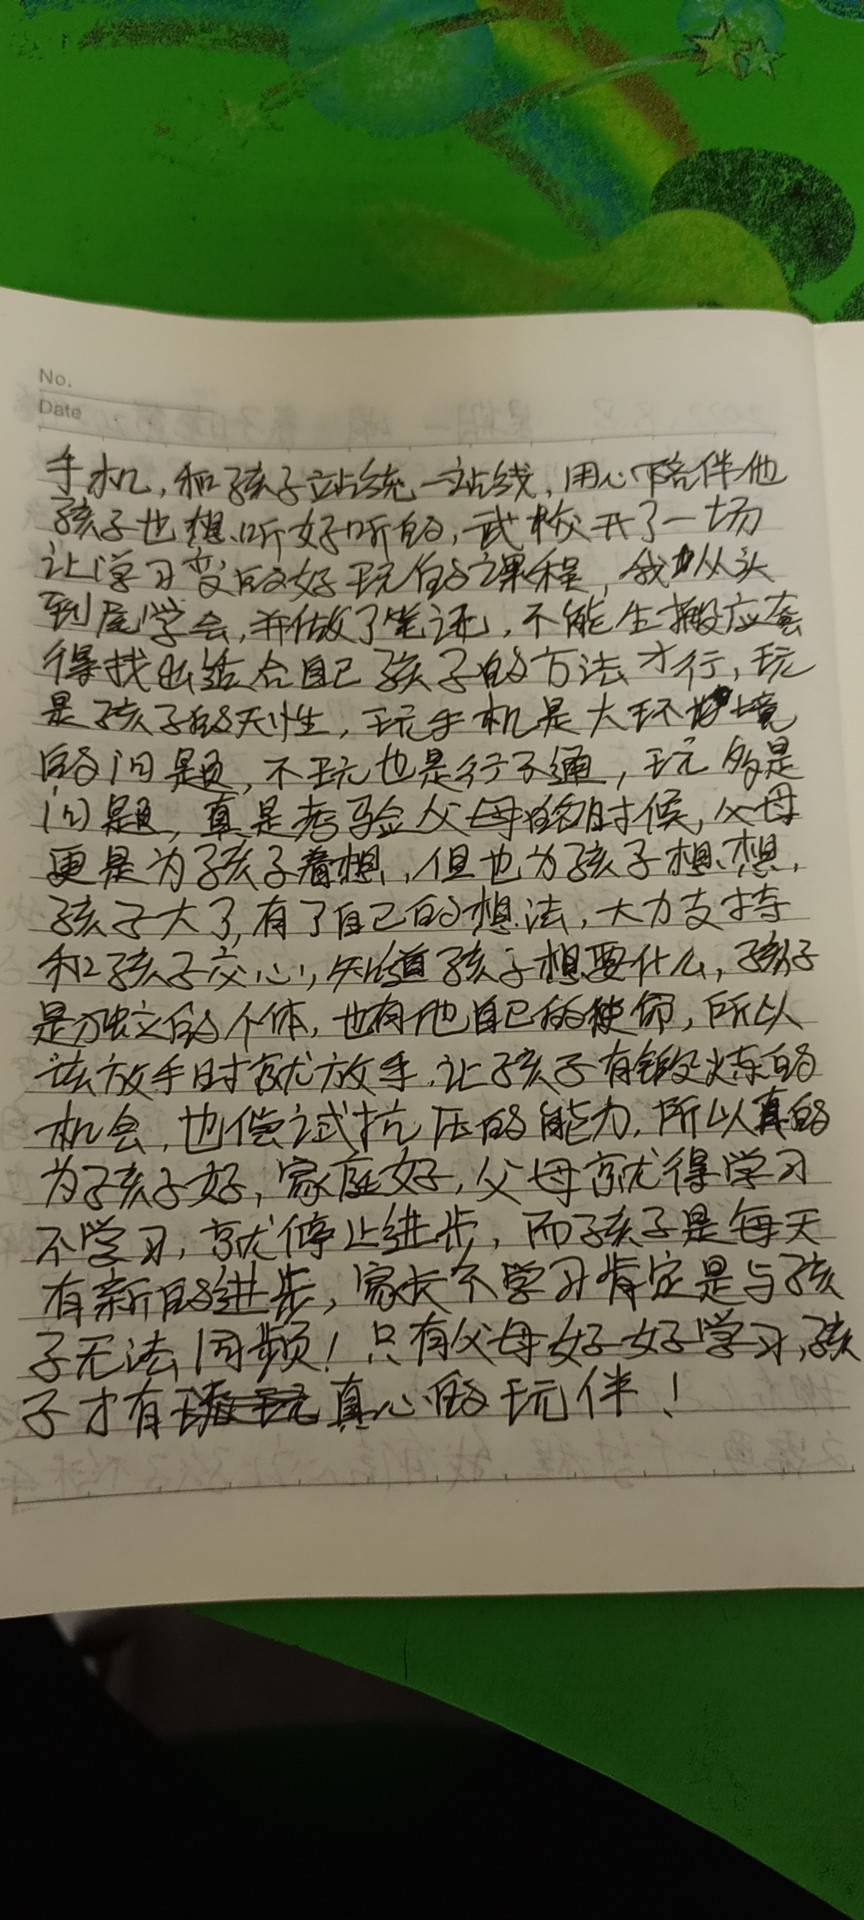 No.
Date
手机，和孩子站统一站线，用心陪伴他
孩子也想听好听的，武校开了一场
让学习变的好玩的课程，我从头
到尾学会，并做了笔记，不能生搬应套
得找出结合自己孩子的方法才行，玩
是孩子的天性，玩手机是大环境
的问题，不玩也是行不通，玩多是
问题，真是考验父母的时候，父母
更是为孩子着想，但也为孩子想想，
孩子大了，有了自己的想法，大力支持
和孩子交心，知道孩子想要什么，孩子
是独立的个体，也有他自己的使命，所以
该放手时就放手，让孩子有锻炼的
机会，也偿试抗压的能力，所以真的
为孩子好，家庭好，父母就得学习
不学习，就停止进步，而孩子是每天
有新的进步，家长不学习肯定是与孩
子无法同频！只有父母好好学习，孩
子才有真心的玩伴！